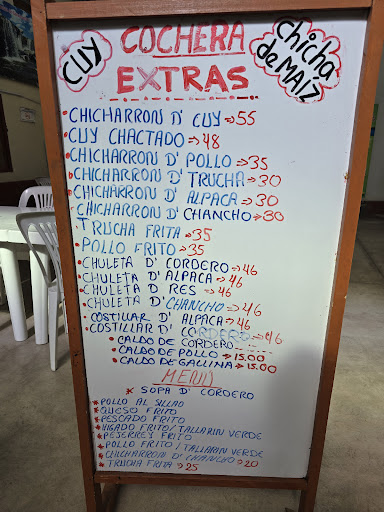 CUY
COCHERA
chicha
de MAIZ
EXTRAS
• CHICHARRON D' CUY → 55
• CUY CHACTADO → 48
• CHICHARRON D' POLLO → 35
• CHICHARRON D' TRUCHA → 30
• CHICHARRON D' ALPACA → 30
CHICHARRON D' CHANCHO → 30
TRUCHA FRITA → 35
• POLLO FRITO → 35
• CHULETA D' CORDERO → 46
• CHULETA D' ALPACA → 46
• CHULETA D RES → 46
• CHULETA D' CHANCHO → 46
COSTILLAR D' ALPACA → 46
• COSTILLAR D' CORDERO → 46
• CALDO DE CORDERO
• CALDO DE POLLO → 15.00
• CALDO DE GALLINA → 15.00
MENU
* SOPA D' CORDERO
* POLLO AL SILLAO
* QUESO FRITO
* PESCADO FRITO
* HIGADO FRITO/TALLARIN VERDE
* PEJERREY FRITO
* POLLO FRITO/TALLARIN VERDE
* CHICHARRON D' CHANCHO → 20
* TRUCHA FRITA → 25